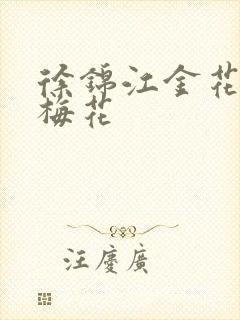 徐錦江金花
梅花
汪慶廣